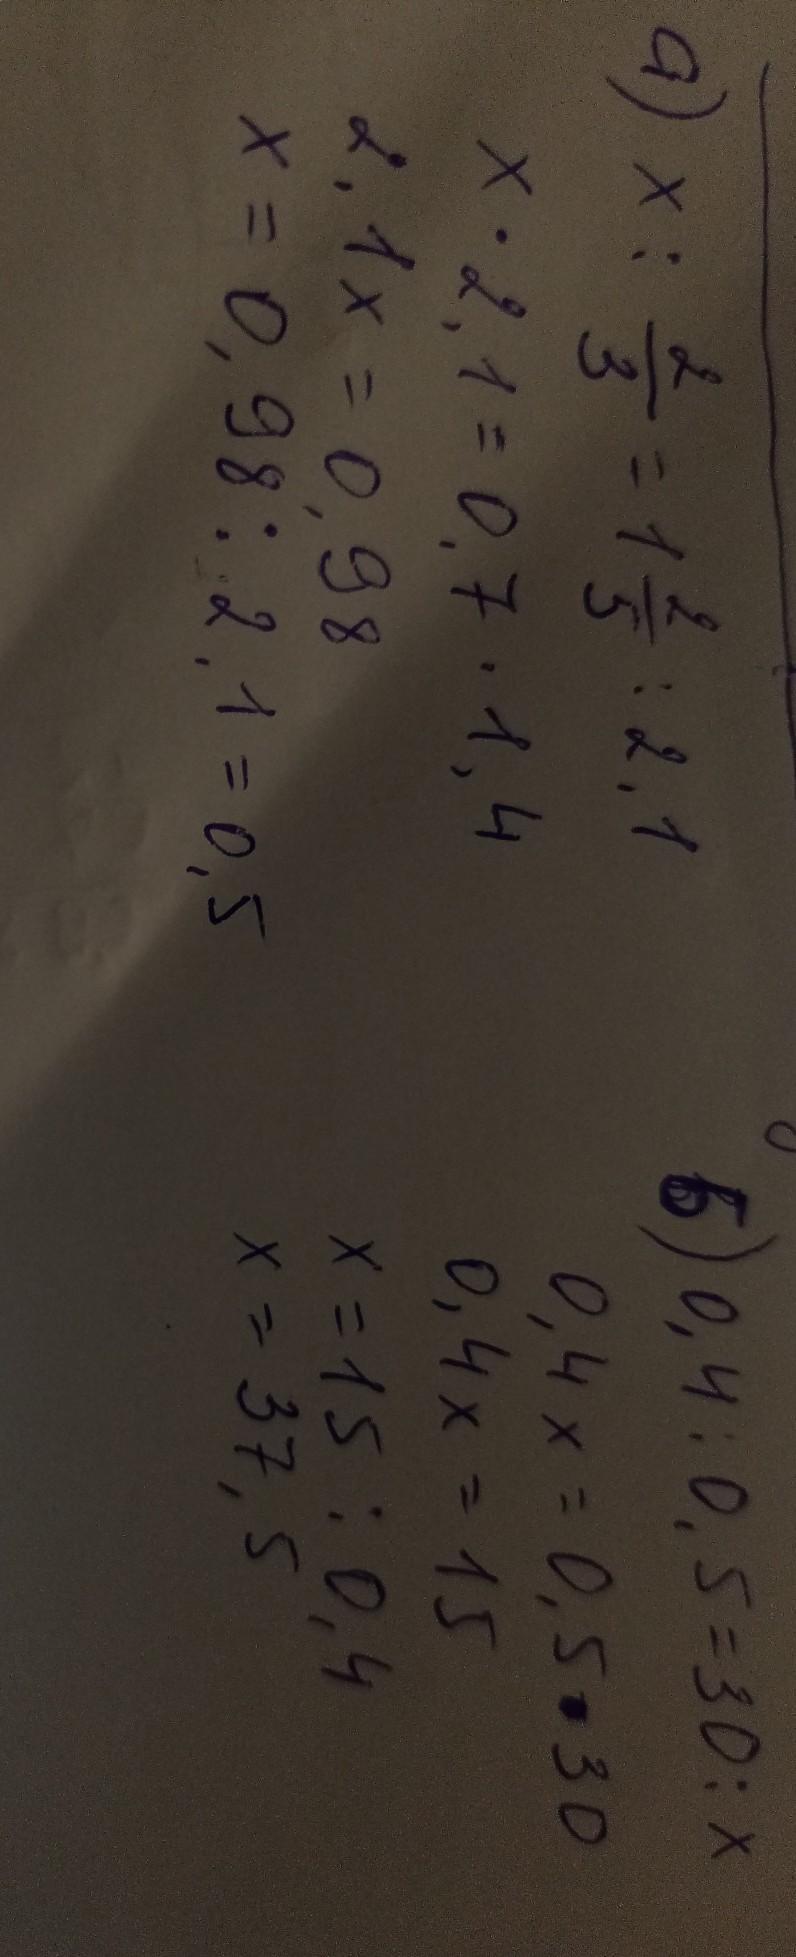 а) x : 2/3 = 1 2/5 : 2,1
x · 2,1 = 0,7 · 1,4
2,1x = 0,98
x = 0,98 : 2,1 = 0,5
б) 0,4 : 0,5 = 30 : x
0,4x = 0,5 · 30
0,4x = 15
x = 15 : 0,4
x = 37,5